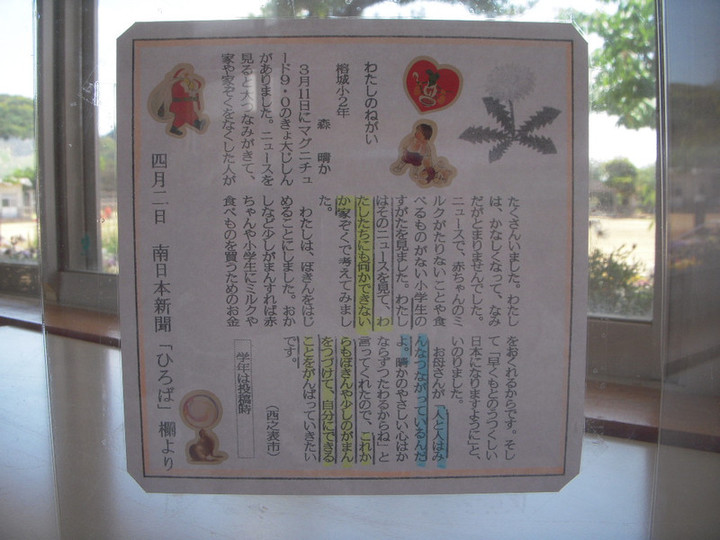 わたしのねがい
榕城小2年
森　晴か
3月11日にマグニチュ
ード9・0のきょ大じしん
がありました。ニュースを
見ると大つなみがきて、
家や家ぞくをなくした人が
たくさんいました。わたし
は、かなしくなって、なみ
だがとまりませんでした。
ニュースで、赤ちゃんのミ
ルクがたりないことや食
べるものがない小学生の
すがたを見ました。わたし
はそのニュースを見て、わ
たしたちにも何かできない
か家ぞくで考えてみまし
た。
わたしは、ぼきんをはじ
めることにしました。おか
しなど少しがまんすれば赤
ちゃんや小学生にミルクや
食べものを買うためのお金
をおくれるからです。そし
て「早くもとのうつくしい
日本になりますように」と、
いのりました。
お母さんが「人と人はみ
んなつながっているんだ
よ。晴かのやさしい心はか
ならずつたわるからね」と
言ってくれたので、これか
らもぼきんや少しのがまん
をつづけて、自分にできる
ことをがんばっていきたい
です。
（西之表市）
学年は投稿時
四月二日　南日本新聞「ひろば」欄より